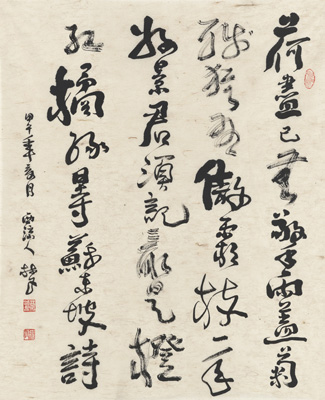 荷盡已無擎雨蓋菊
殘猶有傲霜枝一年
好景君須記最是橙
紅橘綠時蘇東坡詩
甲午年夏月